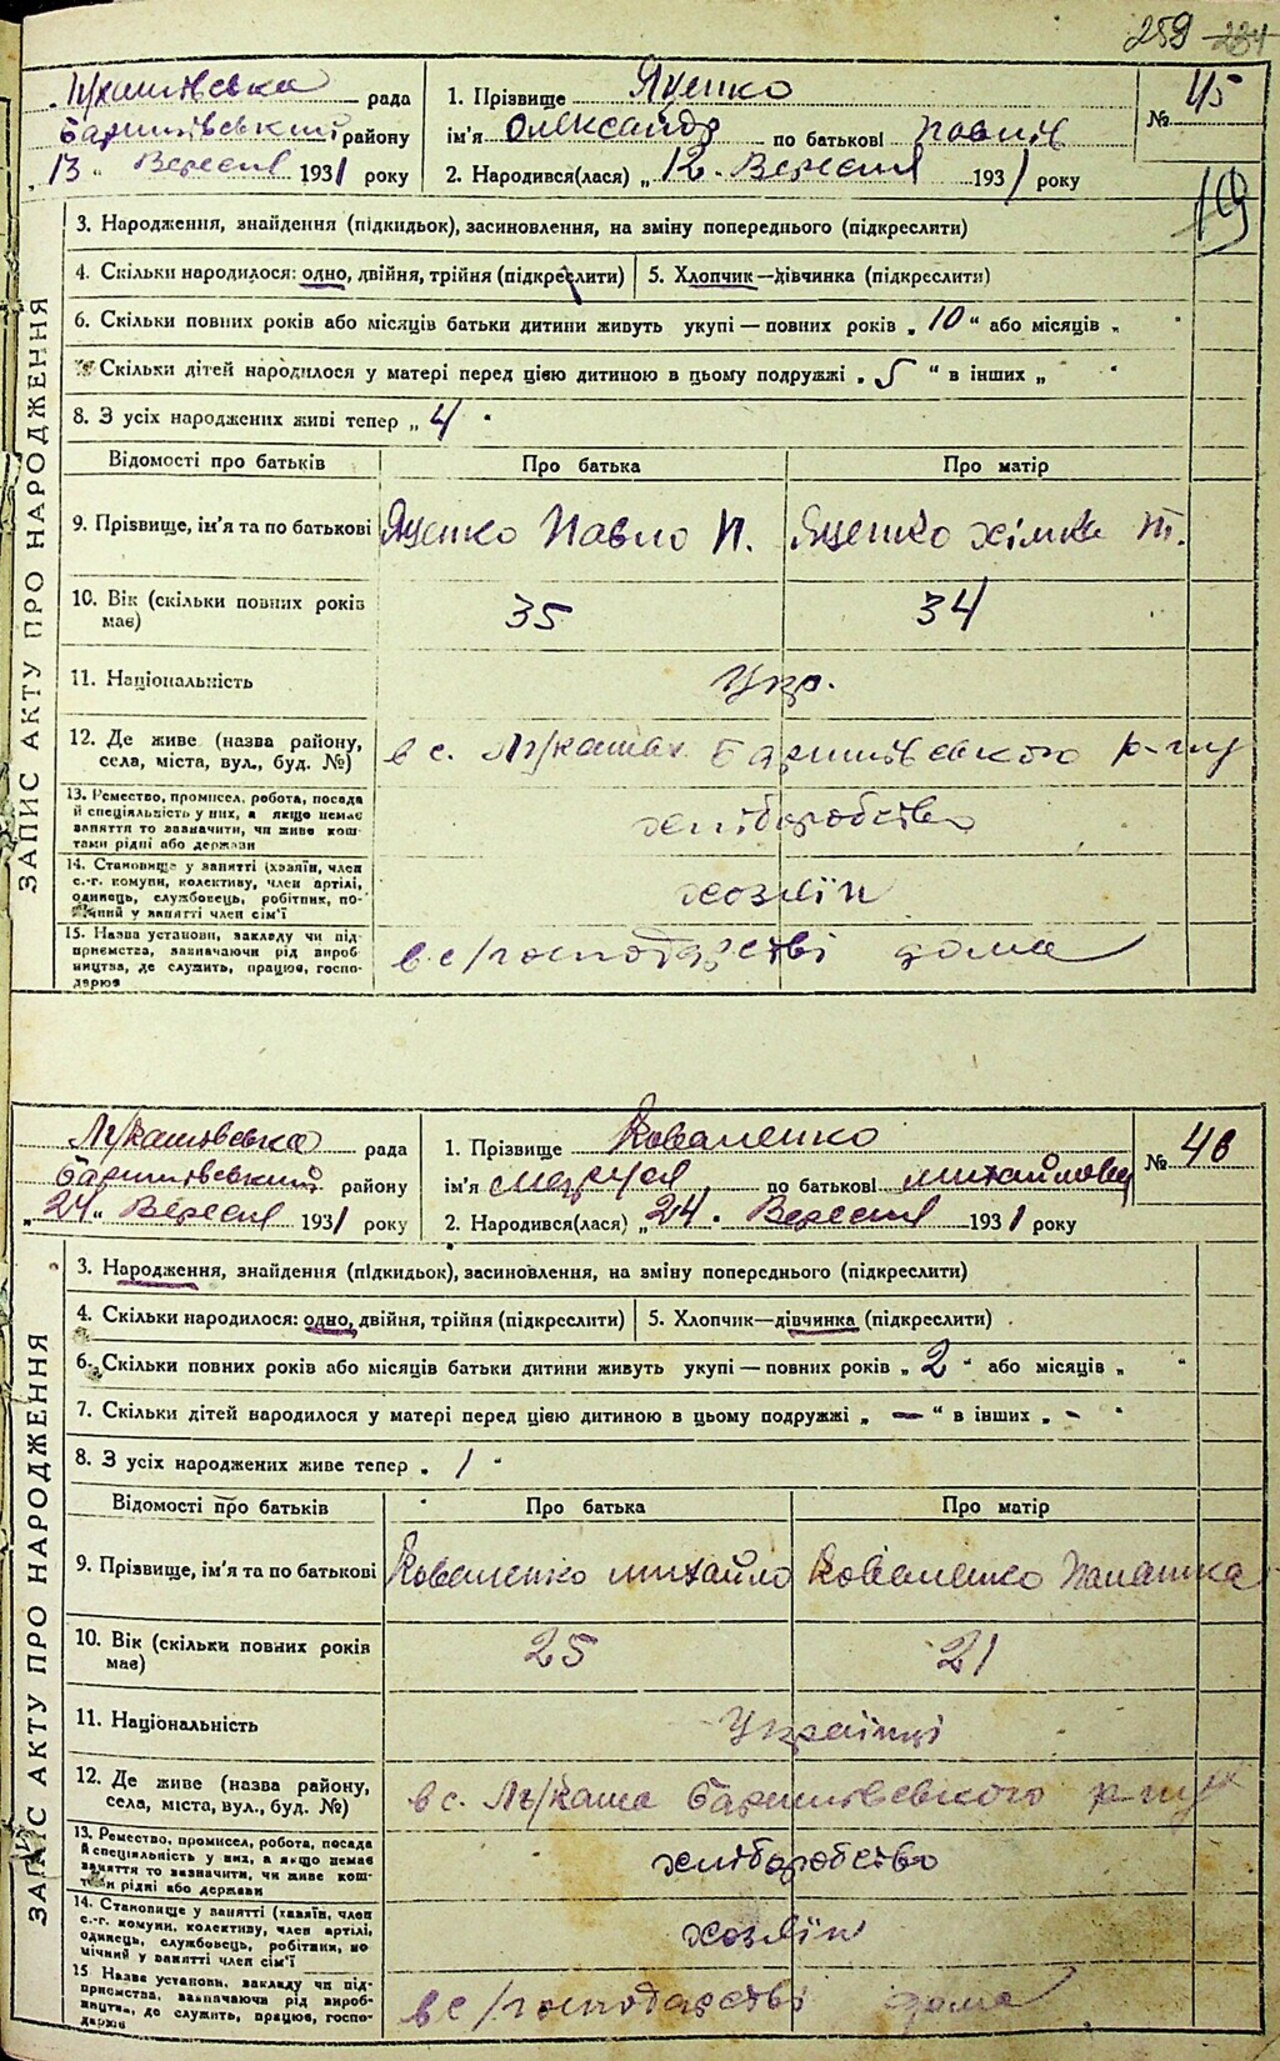 259 234
Лукашівська рада
Баришівський району
„13“ Вересня 1931 року
1. Прізвище Яценко
ім'я Олександр по батькові Павлів
2. Народився(лася) „12. Вересня 1931 року
№ 45
19
ЗАПИС АКТУ ПРО НАРОДЖЕННЯ
3. Народження, знайдення (підкидьок), засиновлення, на зміну попереднього (підкреслити)
4. Скільки народилося: одно, двійня, трійня (підкреслити) 5. Хлопчик—дівчинка (підкреслити)
6. Скільки повних років або місяців батьки дитини живуть укупі — повних років „10“ або місяців „ “
Скільки дітей народилося у матері перед цією дитиною в цьому подружжі „5“ в інших „ “
8. З усіх народжених живі тепер „4“
Відомості про батьків Про батька Про матір
9. Прізвище, ім'я та по батькові Яценко Павло П. Яценко Хімка Т.
10. Вік (скільки повних років має) 35 34
11. Національність Укр.
12. Де живе (назва району, села, міста, вул., буд. №) в с. Лукашах Баришівського р-ну
13. Ремество, промисел, робота, посада й спеціяльність у них, а якщо немає заняття то зазначити, чи живе коштами рідні або держави хліборобство
14. Становище у занятті (хазяїн, член с.-г. комуни, колективу, член артілі, одинець, службовець, робітник, помічний у занятті член сім'ї хозяїн
15. Назва установи, закладу чи підприємства, зазначаючи рід виробництва, де служить, працює, господарює в с/господарстві дома
Лукашовська рада
Баришівський району
„24“ Вересня 1931 року
1. Прізвище Коваленко
ім'я Маруся по батькові Михайловн
2. Народився(лася) „24. Вересня 1931 року
№ 46
ЗАПИС АКТУ ПРО НАРОДЖЕННЯ
3. Народження, знайдення (підкидьок), засиновлення, на зміну попереднього (підкреслити)
4. Скільки народилося: одно, двійня, трійня (підкреслити) 5. Хлопчик—дівчинка (підкреслити)
6. Скільки повних років або місяців батьки дитини живуть укупі — повних років „2“ або місяців „ “
7. Скільки дітей народилося у матері перед цією дитиною в цьому подружжі „—“ в інших „-“
8. З усіх народжених живе тепер „1“
Відомості про батьків Про батька Про матір
9. Прізвище, ім'я та по батькові Коваленко Михайло Коваленко Палашка
10. Вік (скільки повних років має) 25 21
11. Національність Українці
12. Де живе (назва району, села, міста, вул., буд. №) в с. Лукаша Баришовського р-ну
13. Ремество, промисел, робота, посада й спеціяльність у них, а якщо немає заняття то зазначити, чи живе коштами рідні або держави хліборобство
14. Становище у занятті (хазяїн, член с.-г. комуни, колективу, член артілі, одинець, службовець, робітник, помічний у занятті член сім'ї хозяїн
15 Назва установи, закладу чи підприємства, зазначаючи рід виробництва, де служить, працює, господарює в с/господарстві дома